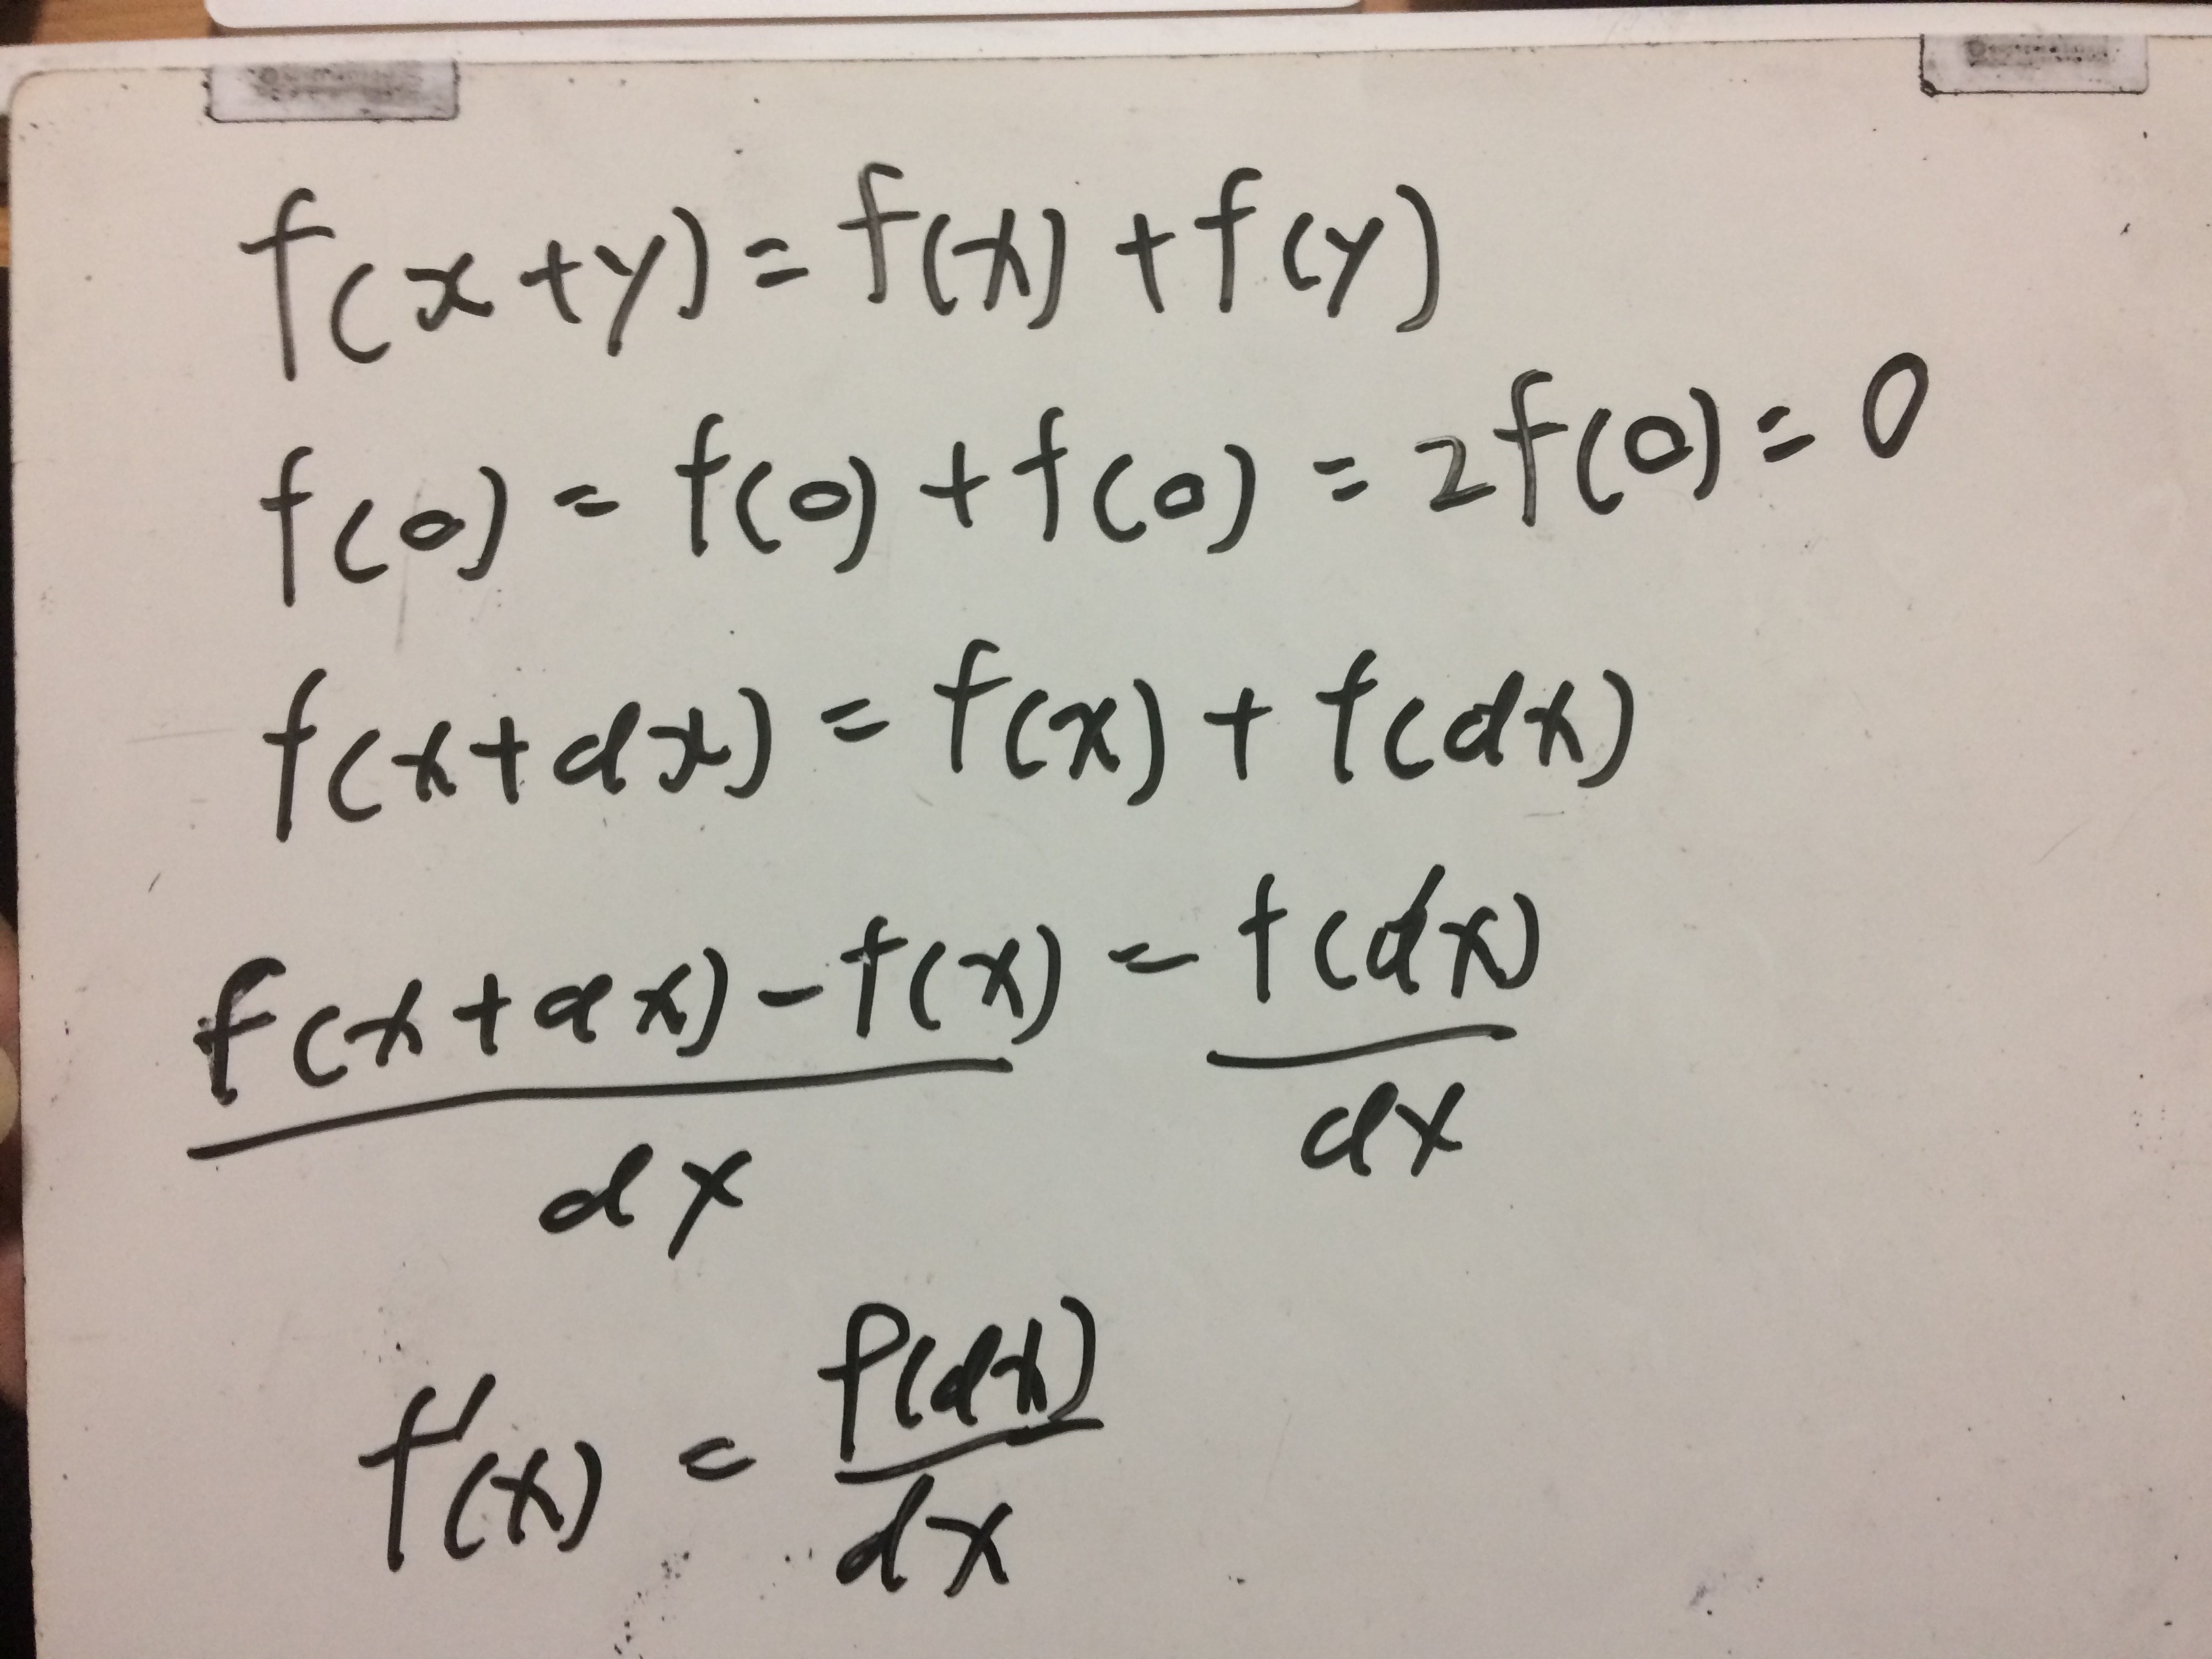 f(x+y) = f(x) + f(y)
f(0) = f(0) + f(0) = 2f(0) = 0
f(x+dx) = f(x) + f(dx)
f(x+dx) - f(x) = f(dx)
dx dx
f'(x) = f(dx)
dx